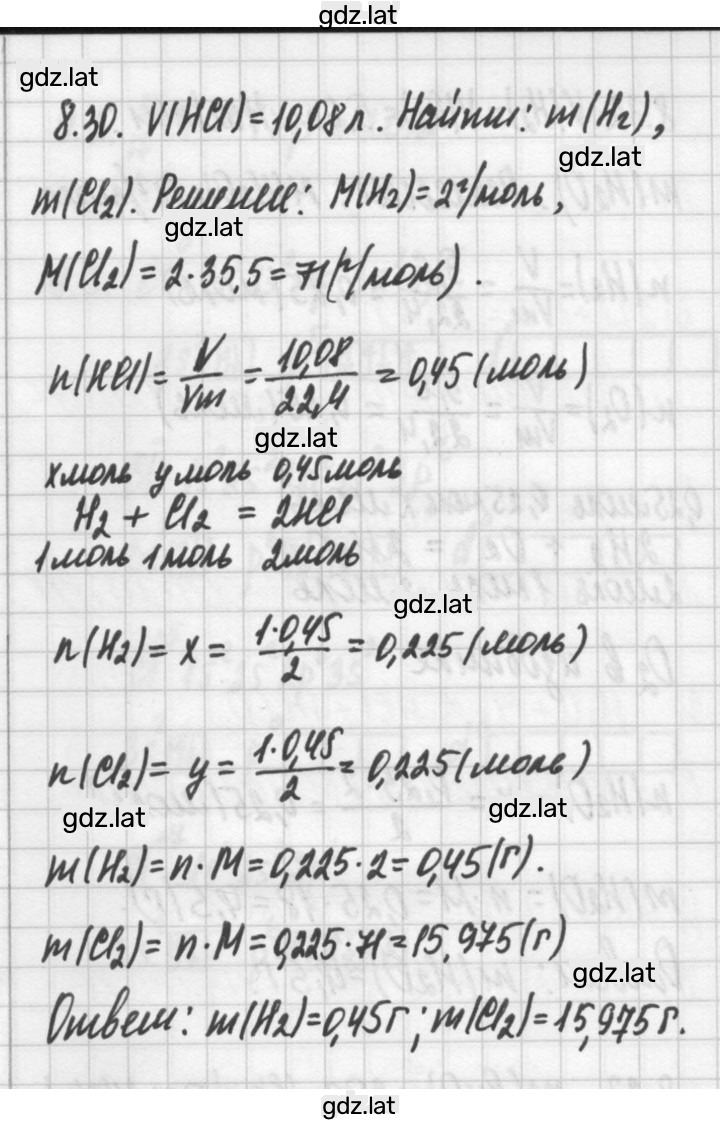 gdz.lat
gdz.lat
8.30. V(HCl)=10,08 л. Найти: m(H₂),
gdz.lat
m(Cl₂). Решение: M(H₂)=2г/моль,
gdz.lat
M(Cl₂)=2·35,5=71(г/моль).
n(HCl)=V/Vm=10,08/22,4=0,45(моль)
gdz.lat
x моль y моль 0,45 моль
H₂ + Cl₂ = 2HCl
1 моль 1 моль 2 моль
gdz.lat
n(H₂)= x = 1·0,45/2 = 0,225(моль)
n(Cl₂)= y = 1·0,45/2 = 0,225(моль)
gdz.lat
gdz.lat
m(H₂)=n·M=0,225·2=0,45(г).
m(Cl₂)= n·M=0,225·71=15,975(г)
gdz.lat
Ответ: m(H₂)=0,45г; m(Cl₂)=15,975г.
gdz.lat